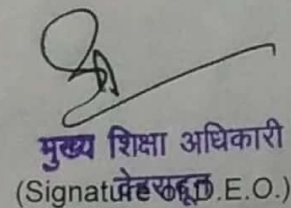 मुख्य शिक्षा अधिकारी
देहरादून
(Signature of D.E.O.)